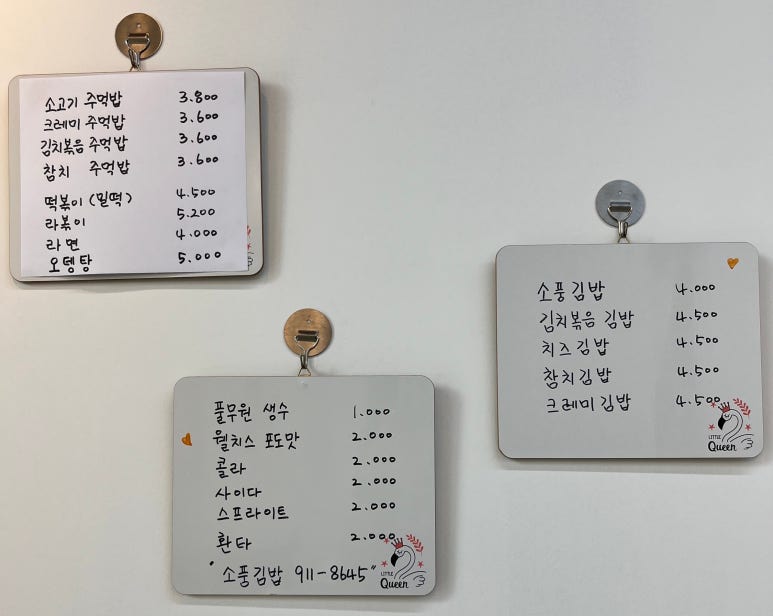 소고기 주먹밥 3.800
크레미 주먹밥 3.600
김치볶음 주먹밥 3.600
참치 주먹밥 3.600
떡볶이 (밀떡) 4.500
라볶이 5.200
라면 4.000
오뎅탕 5.000
소풍김밥 4.000
김치볶음 김밥 4.500
치즈김밥 4.500
참치김밥 4.500
크레미김밥 4.500
LITTLE
Queen
풀무원 생수 1.000
웰치스 포도맛 2.000
콜라 2.000
사이다 2.000
스프라이트 2.000
환타 2.000
"소풍김밥 911-8645"
LITTLE
Queen